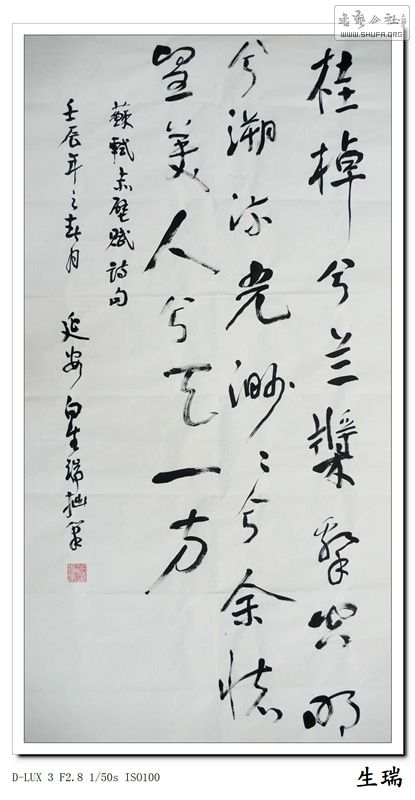 書藝公社
WWW.SHUFA.ORG
桂棹兮兰槳擊空明
兮溯流光渺〻兮余懷
望美人兮天一方
蘇軾赤壁賦詩句
壬辰年之春月 延安 白生瑞拙筆
D-LUX 3 F2.8 1/50s ISO100
生瑞